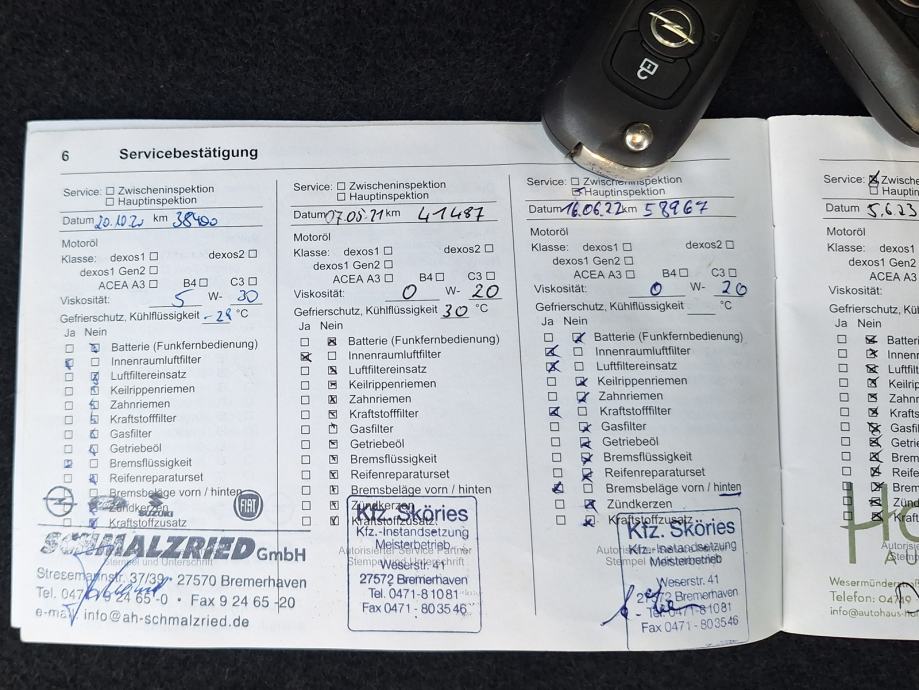 6 Servicebestätigung
Service: Zwischeninspektion
Hauptinspektion
Datum 20.10.20 km 38400
Motoröl
Klasse: dexos1 dexos2
dexos1 Gen2
ACEA A3 B4 C3
Viskosität: 5 W- 30
Gefrierschutz, Kühlflüssigkeit -28 °C
Ja Nein
Batterie (Funkfernbedienung)
Innenraumluftfilter
Luftfiltereinsatz
Keilrippenriemen
Zahnriemen
Kraftstofffilter
Gasfilter
Getriebeöl
Bremsflüssigkeit
Reifenreparaturset
Bremsbeläge vorn / hinten
Zündkerzen
Kraftstoffzusatz
SUZUKI FIAT
SCHMALZRIED GmbH
Stempel und Unterschrift
Stresemannstr. 37/39 • 27570 Bremerhaven
Tel. 0471/9 24 65 -0 • Fax 9 24 65 -20
e-mail: info@ah-schmalzried.de
Service: Zwischeninspektion
Hauptinspektion
Datum 07.05.21 km 41487
Motoröl
Klasse: dexos1 dexos2
dexos1 Gen2
ACEA A3 B4 C3
Viskosität: 0 W- 20
Gefrierschutz, Kühlflüssigkeit 30 °C
Ja Nein
Batterie (Funkfernbedienung)
Innenraumluftfilter
Luftfiltereinsatz
Keilrippenriemen
Zahnriemen
Kraftstofffilter
Gasfilter
Getriebeöl
Bremsflüssigkeit
Reifenreparaturset
Bremsbeläge vorn / hinten
Zündkerzen
Kraftstoffzusatz
Autorisierter Service Partner
Stempel und Unterschrift
Kfz. Sköries
Kfz.-Instandsetzung
Meisterbetrieb
Weserstr. 41
27572 Bremerhaven
Tel. 0471-81081
Fax 0471 - 803546
Service: Zwischeninspektion
Hauptinspektion
Datum 16.06.22 km 58967
Motoröl
Klasse: dexos1 dexos2
dexos1 Gen2
ACEA A3 B4 C3
Viskosität: 0 W- 20
Gefrierschutz, Kühlflüssigkeit °C
Ja Nein
Batterie (Funkfernbedienung)
Innenraumluftfilter
Luftfiltereinsatz
Keilrippenriemen
Zahnriemen
Kraftstofffilter
Gasfilter
Getriebeöl
Bremsflüssigkeit
Reifenreparaturset
Bremsbeläge vorn / hinten
Zündkerzen
Kraftstoffzusatz
Kfz. Sköries
Kfz.-Instandsetzung
Meisterbetrieb
Weserstr. 41
27572 Bremerhaven
Tel. 0471-81081
Fax 0471 - 803546
Service: Zwische
Hauptin
Datum 5.6.23
Motoröl
Klasse: dexos
dexos1 Ge
ACEA A
Viskosität:
Gefrierschutz, Kü
Ja Nein
Batteri
Innenr
Luftfilt
Keilrip
Zahnr
Krafts
Gasfil
Getrie
Brems
Reifen
Brems
Zünd
Kraft
Wesermünder
Telefon: 04749
info@autohaus-h